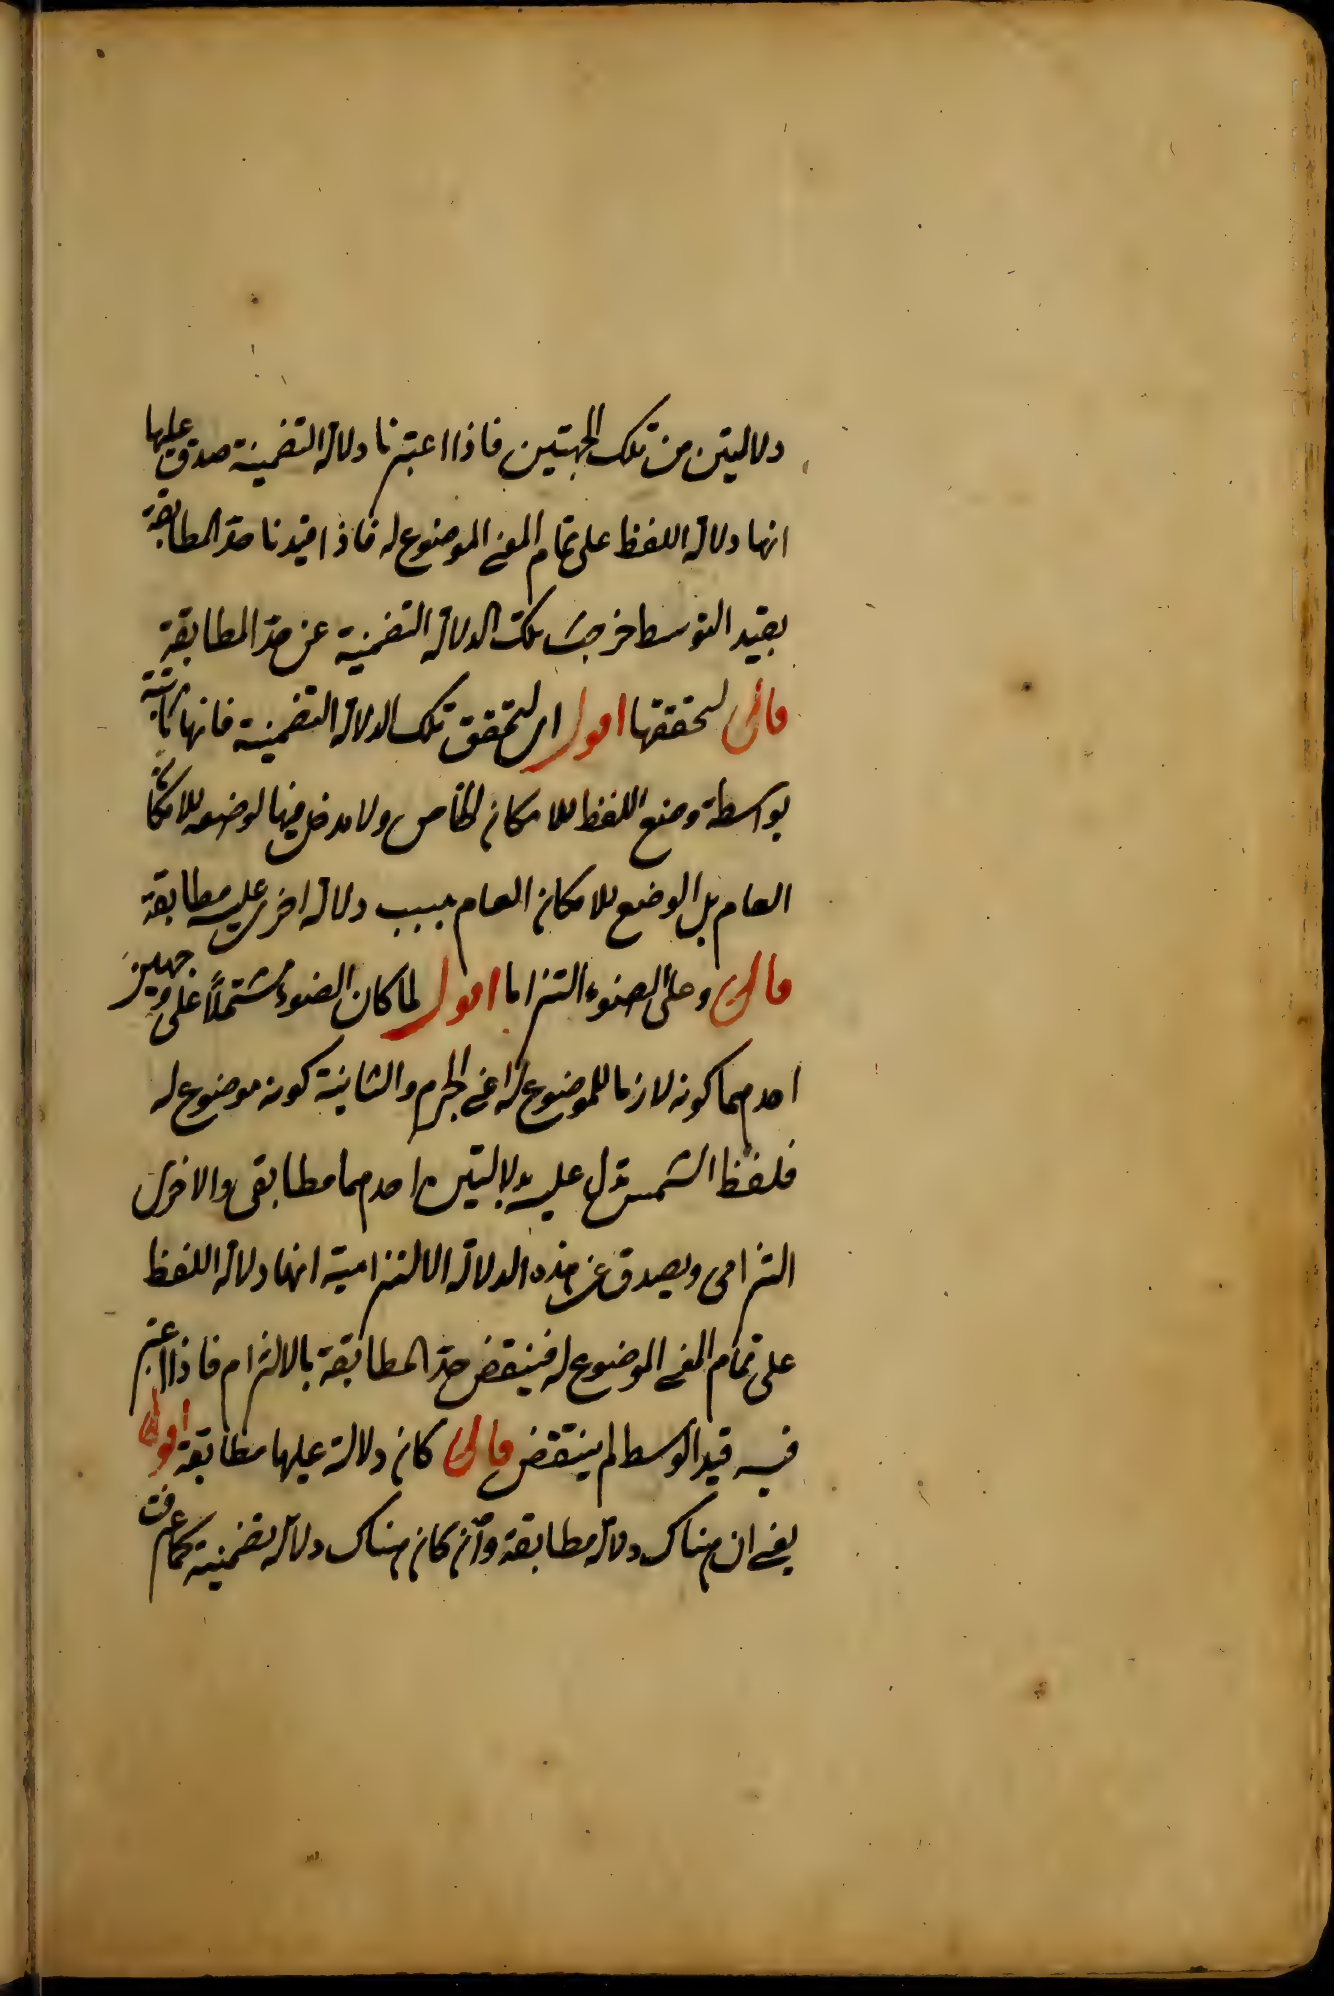 دلاليتن من تلك الجهتين فاذا اعتبرنا دلالة التضمنية صدق عليها
انها دلالة اللفظ على تمام المعنى الموضوع له فاذا قيدنا حد المطابقة
بقيد التوسط خرجت تلك الدلالة التضمنية عن حد المطابقة
قال لتحققها اقول اى لتحقق تلك الدلالة التضمنية فانها ثابتة
بواسطة وضع اللفظ للامكان الخاص ولا مدخل فيها لوضعه للامكان
العام بل الوضع للامكان العام سبب دلالة اخرى عليه مطابقة
قال وعلى الضوء التزاما اقول لما كان الضوء مشتملاً على جهتين
احدهما كونه لازما للموضوع له اعنى الجرم والثانية كونه موضوع له
فلفظ الشمس تدل عليه بدلالتين احدهما مطابقى والاخرى
التزامى ويصدق عن هذه الدلالة الالتزامية انها دلالة اللفظ
على تمام المعنى الموضوع له فينتقض حد المطابقة بالالتزام فاذا اعتبر
فيه قيد التوسط لم ينتقض قال كان دلالة عليها مطابقة اقول
يعنى ان هناك دلالة مطابقة وان كان هناك دلالة تضمنية كما عرفت